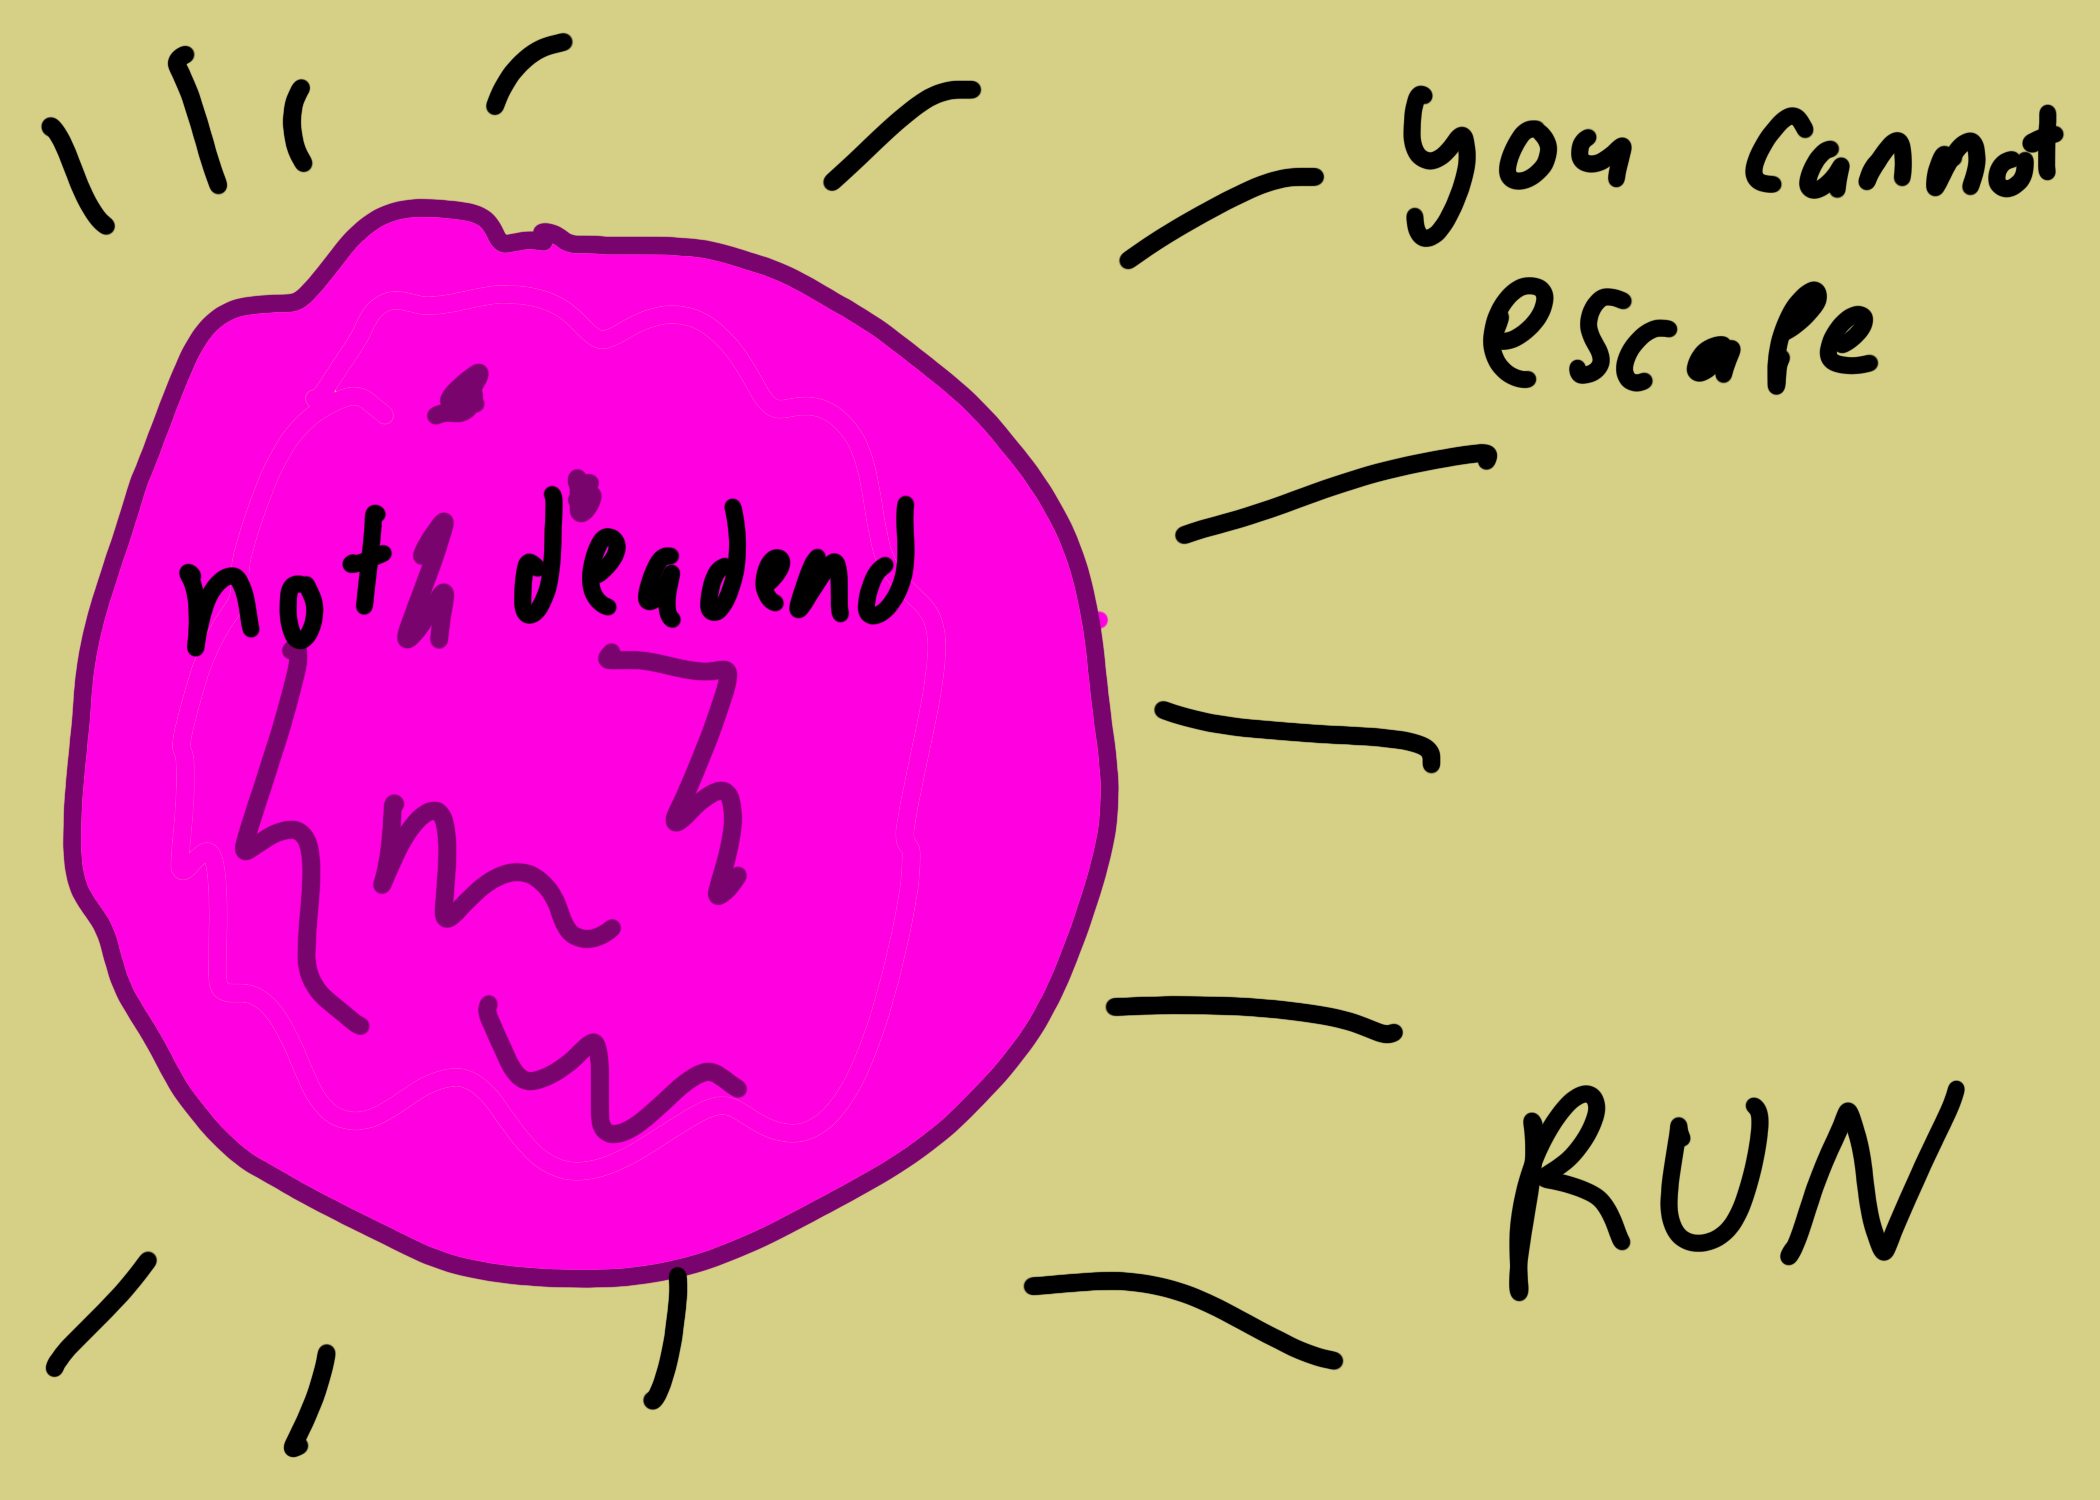 you cannot
escape
not deadend
RUN